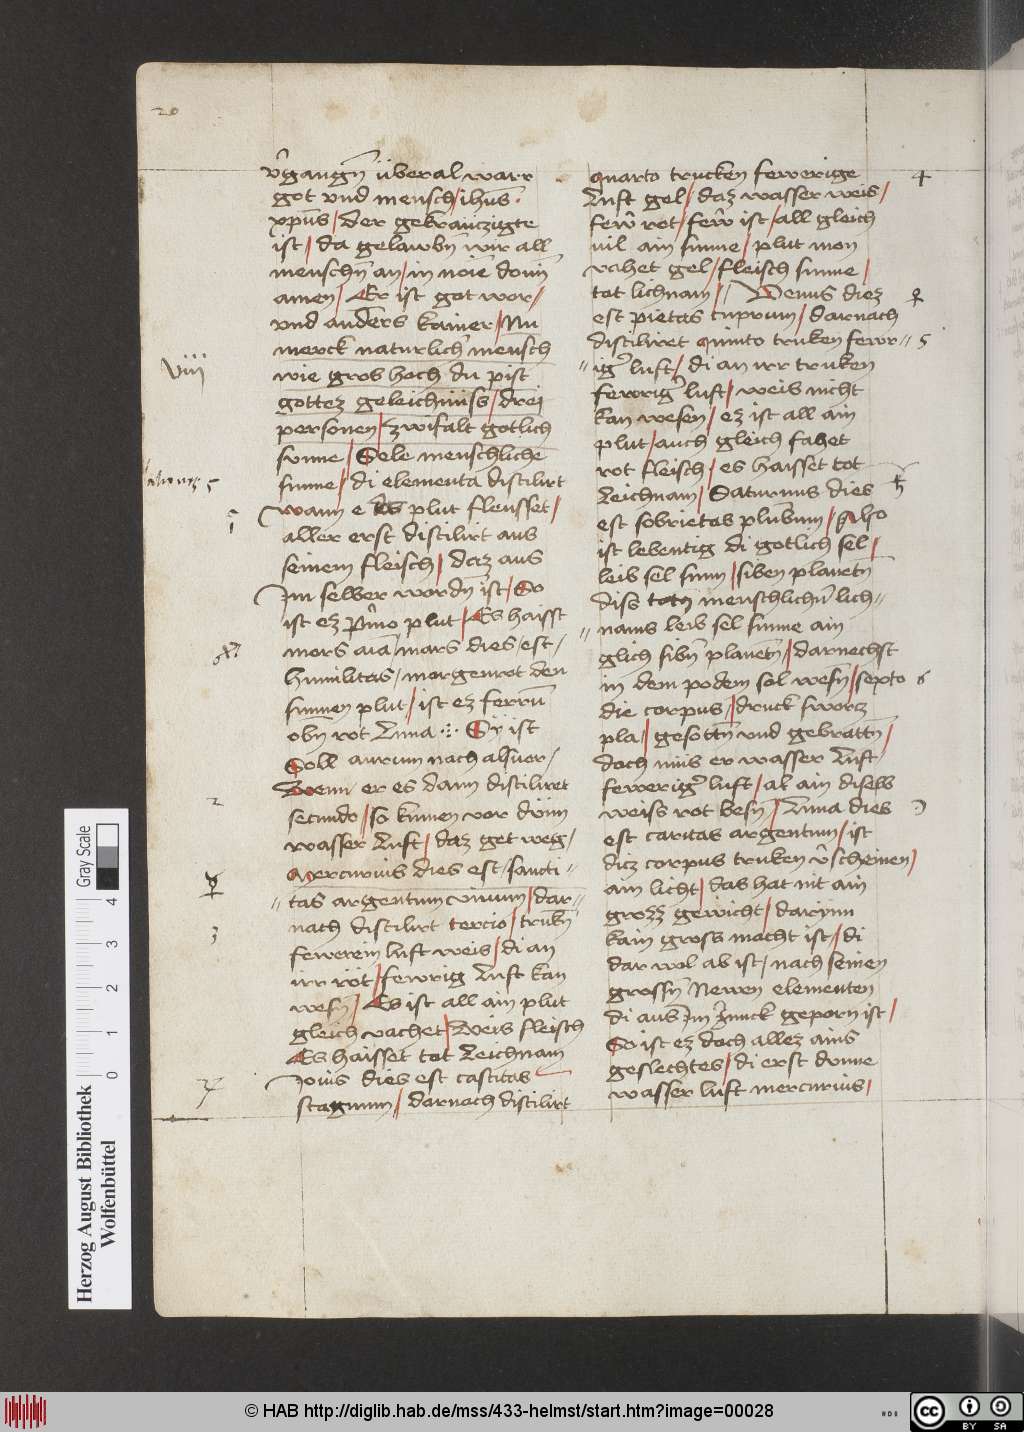 20
v̂gangn̄ überal warr
got vnd mensch / ihūs ·
xpūs / der gekraūczigte
ist / da gelawbn̄ wir all
menschn̄ an / in noīe domī
amen / Er ist got wor /
vnd anders kainer / Nu
merck naturlich mensch
viij
wie gros hoch du pist
gottez geleichniss / drei
personen / zwifalt gotlich
sunne / Sele menschliche
sinne / di elementa distilirt
wann e das plut fleusset /
aller erst distilirt aus
seinem fleisch / daz aus
Im selber wordn̄ ist / So
ist ez p̄mo plut / Es haisst
mors aīa / mars dies / est /
humilitas / morgenrot den
sinnen plut / ist ez ferrū
obn̄ rot Luna Sÿ ist
Soll aurum nach alsuer /
Wenn er es dann distiliret
2
secundo / so kumen vor dünn
wasser Luft / daz get weg /
Mercurius dies est / sancti=
=tas argentum vivum / dar=
nach distilirt tercio / trukn̄
3
fewrein luft weis / di an
irr röt / fewrig Luft kan
wesn̄ / Es ist all ain plut
gleich vachet / Weis fleisch
Es haisset tot Leichnam
Jovis dies est castitas
stagnum / darnach distilirt
quarto trucken fewerige
4
Luft gel / daz wasser weis /
fewr̂ rot / fewr̂ ist / all gleich
vil ain sinne / plut mon
vahet gel / fleisch sinne /
tot lichnam / Venus diez
♀
est pietas cuprum / darnach
distiliret Quinto truken fewr=
5
=iger luft / di an irr truken
fewrig luft / weis nicht
kan wesen / ez ist all ain
plut / auch gleich fahet
rot fleisch / es haisset tot
Leichnam / Saturnus dies
♄
est sobrietas plūbum / Also
ist lebentig di gotlich sel /
leib sel sinn / siben planetn̄
diss totn̄ menschlichn̄ lich=
=nams leib sel sinne ain
glich sibn̄ planetn̄ / darnechst
in dem podem sol wesn̄ / septo
6
die corpus / druck swarcz
pla / gesottn̄ vnd gebratn̄ /
doch mus er wasser Luft
feweriger luft / al ain diselb
weiss rot besn̄ / Luna dies
☽
est caritas argentum / ist
dicz corpus truken v̂scheinen /
ain licht / das hat nit ain
grozz gewicht / darÿnn
kain gross macht ist / di
dar wol ab ist / nach seinen
grossn̄ Newen elementen
di aus im zuruck geporn ist /
So ist ez doch allez ains
geslechtes / di erst dunne
wasser luft mercurius /
Herzog August Bibliothek
Wolfenbüttel
0 1 2 3 4
Gray Scale
© HAB http://diglib.hab.de/mss/433-helmst/start.htm?image=00028
HAB
cc BY SA